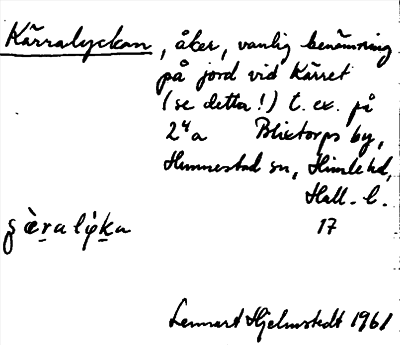 Kärralyckan, åker, vanlig benämning
på jord vid Kärret
(se detta!) t. ex. på
2⁴a Blixtorps by,
Hunnestad sn, Himle hd,
Hall. l.
17
Lennart Hjelmstedt 1961